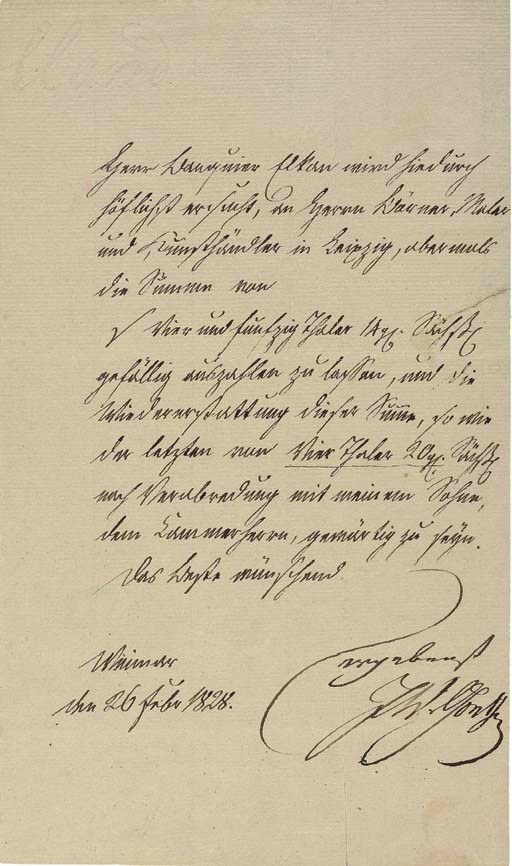 Herr Banquier Elkan wird hiedurch
höflichst ersucht, an Herrn Börner, Maler
und Kunsthändler in Leipzig, abermals
die Summe von
Vier und funfzig Thaler 14 gr. Sächs.
gefällig auszahlen zu lassen, und die
Wiedererstattung dieser Summe, so wie
der letzten von Vier Thaler 20 gr. Sächs.
nach Verabredung mit meinem Sohne,
dem Cammerherrn, gewärtig zu seyn.
Das Beste wünschend
ergebenst
Weimar
den 26 Febr 1828.
JW. Goethe